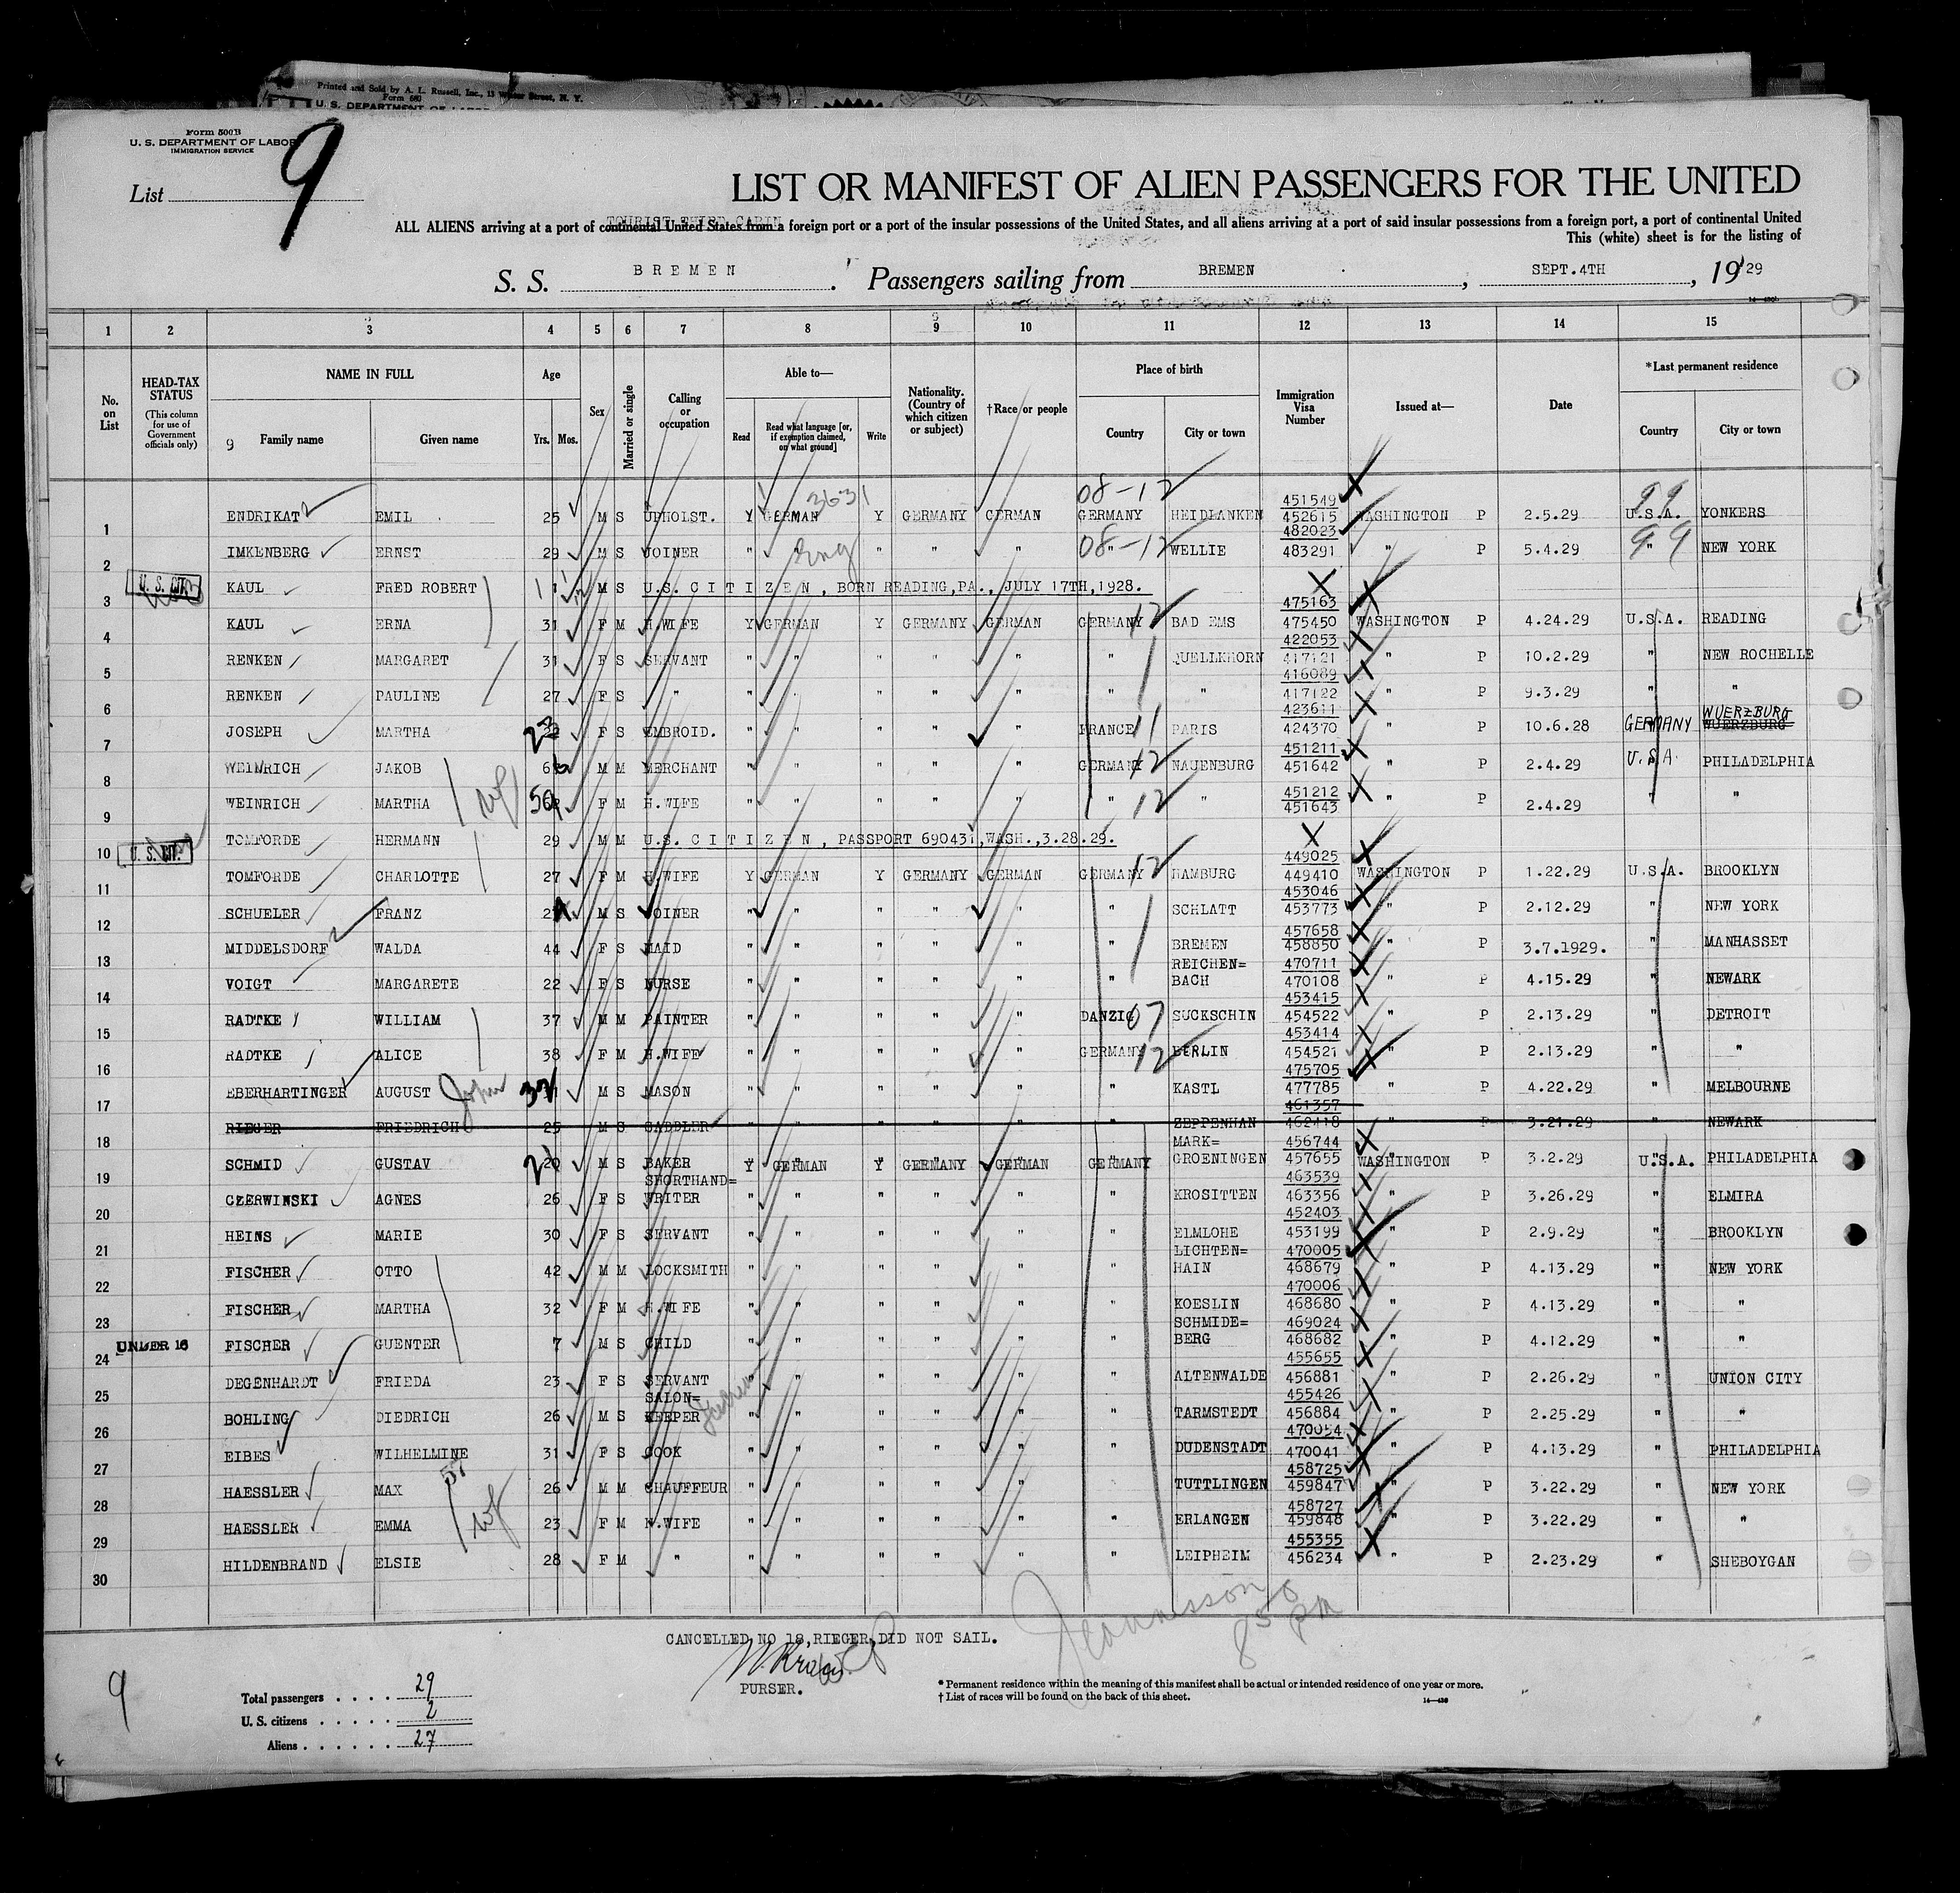 Printed and Sold by A. L. Russell, Inc., 13 Water Street, N. Y.
Form 680
U. S. DEPARTMENT OF LABOR
Form 500B
U. S. DEPARTMENT OF LABOR
IMMIGRATION SERVICE
List 9
LIST OR MANIFEST OF ALIEN PASSENGERS FOR THE UNITED
TOURIST THIRD CABIN
ALL ALIENS arriving at a port of continental United States from a foreign port or a port of the insular possessions of the United States, and all aliens arriving at a port of said insular possessions from a foreign port, a port of continental United
This (white) sheet is for the listing of
S. S. BREMEN. Passengers sailing from BREMEN, SEPT.4TH, 1929
1 2 3 4 5 6 7 8 9 10 11 12 13 14 15
No. on List
HEAD-TAX STATUS (This column for use of Government officials only)
NAME IN FULL
9 Family name Given name
Age Yrs. Mos.
Sex
Married or single
Calling or occupation
Able to—
Read Read what language [or, if exemption claimed, on what ground] Write
Nationality. (Country of which citizen or subject)
†Race or people
Place of birth
Country City or town
Immigration Visa Number
Issued at—
Date
*Last permanent residence
Country City or town
08-12 451549 99
3631
1 ENDRIKAT EMIL 25 M S UPHOLST. Y GERMAN Y GERMANY GERMAN GERMANY HEIDLANKEN 452615 WASHINGTON P 2.5.29 U.S.A. YONKERS
08-12 482023 99
2 IMKENBERG ERNST 29 M S JOINER " " Eng " " " " WELLIE 483291 " P 5.4.29 " NEW YORK
3 U. S. CIT. KAUL FRED ROBERT 1 M S U.S. C I T I Z E N , BORN READING,PA., JULY 17TH,1928. X
475163
4 KAUL ERNA 31 F M H.WIFE Y GERMAN Y GERMANY GERMAN GERMANY 12 BAD EMS 475450 WASHINGTON P 4.24.29 U.S.A. READING
422053
5 RENKEN MARGARET 31 F S SERVANT " " " " " " QUELLKHORN 417121 " P 10.2.29 " NEW ROCHELLE
416089
6 RENKEN PAULINE 27 F S " " " " " " " " 417122 " P 9.3.29 " "
423611 WUERZBURG
7 JOSEPH MARTHA 23 F S EMBROID. " " " " " FRANCE 11 PARIS 424370 " P 10.6.28 GERMANY WUERZBURG
451211
8 WEINRICH JAKOB 6 M M MERCHANT " " " " " GERMANY 12 NAUENBURG 451642 " P 2.4.29 U.S.A. PHILADELPHIA
wf 451212
9 WEINRICH MARTHA 50 F M H.WIFE " " " " " " 12 " 451643 " P 2.4.29 " "
10 U. S. CIT. TOMFORDE HERMANN 29 M M U.S. C I T I Z E N , PASSPORT 690431,WASH.,3.28.29. X
449025
11 TOMFORDE CHARLOTTE 27 F M H.WIFE Y GERMAN Y GERMANY GERMAN GERMANY 12 HAMBURG 449410 WASHINGTON P 1.22.29 U.S.A. BROOKLYN
453046
12 SCHUELER FRANZ 2 M S JOINER " " " " " " SCHLATT 453773 " P 2.12.29 " NEW YORK
457658
13 MIDDELSDORF WALDA 44 F S MAID " " " " " " BREMEN 458850 " P 3.7.1929. " MANHASSET
REICHEN= 470711
14 VOIGT MARGARETE 22 F S NURSE " " " " " " BACH 470108 " P 4.15.29 " NEWARK
453415
15 RADTKE WILLIAM 37 M M PAINTER " " " " " DANZIG 07 SUCKSCHIN 454522 " P 2.13.29 " DETROIT
453414
16 RADTKE ALICE 38 F M H.WIFE " " " " " GERMANY 12 BERLIN 454521 " P 2.13.29 " "
475705
17 EBERHARTINGER AUGUST John 32 M S MASON " " " " " " KASTL 477785 " P 4.22.29 " MELBOURNE
461357
18 RIEGER FRIEDRICH 25 M S SADDLER " " " " " " ZEPPENHAN 462418 " P 3.21.29 " NEWARK
MARK= 456744
19 SCHMID GUSTAV 2 M S BAKER Y GERMAN Y GERMANY GERMAN GERMANY GROENINGEN 457655 WASHINGTON P 3.2.29 U.S.A. PHILADELPHIA
SHORTHAND= 463539
20 CZERWINSKI AGNES 26 F S WRITER " " " " " " KROSITTEN 463356 " P 3.26.29 " ELMIRA
452403
21 HEINS MARIE 30 F S SERVANT " " " " " " ELMLOHE 453199 " P 2.9.29 " BROOKLYN
LICHTEN= 470005
22 FISCHER OTTO 42 M M LOCKSMITH " " " " " " HAIN 468679 " P 4.13.29 " NEW YORK
470006
23 FISCHER MARTHA 32 F M H.WIFE " " " " " " KOESLIN 468680 " P 4.13.29 " "
SCHMIDE= 469024
24 UNDER 16 FISCHER GUENTER 7 M S CHILD " " " " " " BERG 468682 " P 4.12.29 " "
455655
25 DEGENHARDT FRIEDA 23 F S SERVANT " " " " " " ALTENWALDE 456881 " P 2.26.29 " UNION CITY
SALON= 455426
26 BOHLING DIEDRICH 26 M S KEEPER " " " " " " TARMSTEDT 456884 " P 2.25.29 " "
470054
27 EIBES WILHELMINE 31 F S COOK " " " " " " DUDENSTADT 470041 " P 4.13.29 " PHILADELPHIA
57 458725
28 HAESSLER MAX 26 M M CHAUFFEUR " " " " " " TUTTLINGEN 459847 " P 3.22.29 " NEW YORK
wf 458727
29 HAESSLER EMMA 23 F M H.WIFE " " " " " " ERLANGEN 459848 " P 3.22.29 " "
455355
30 HILDENBRAND ELSIE 28 F M " " " " " " " LEIPHEIM 456234 " P 2.23.29 " SHEBOYGAN
CANCELLED NO 18,RIEGER,DID NOT SAIL.
850 PM
PURSER.
9
Total passengers . . . . 29
U. S. citizens . . . . . 2
Aliens . . . . . . 27
* Permanent residence within the meaning of this manifest shall be actual or intended residence of one year or more.
† List of races will be found on the back of this sheet.
14—436